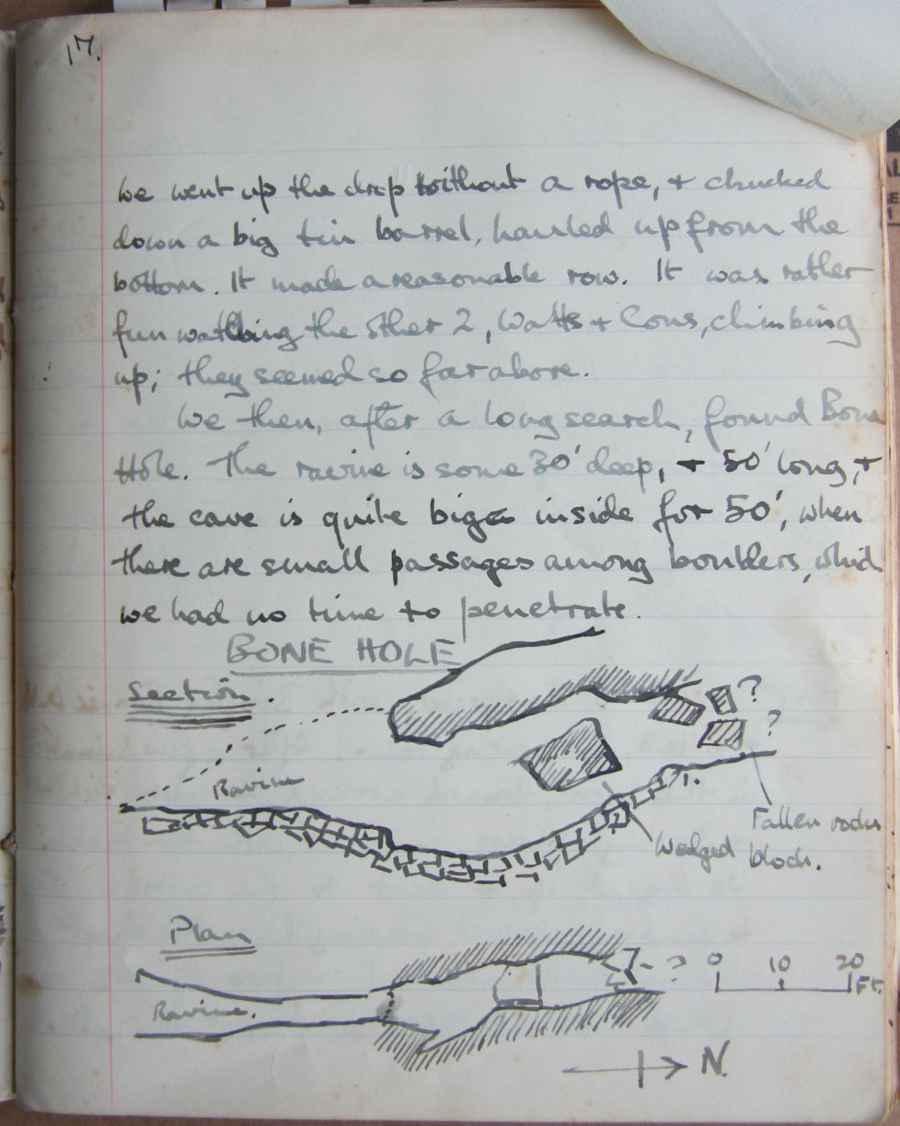 17.
we went up the drop without a rope, & chucked
down a big tin barrel, hauled up from the
bottom. It made a reasonable row. It was rather
fun watching the other 2, Watts & Cons, climbing
up; they seemed so far above.
We then, after a long search, found Bone
Hole. The ravine is some 30' deep, + 50' long, +
the cave is quite big inside for 50', when
there are small passages among boulders, which
we had no time to penetrate.
BONE HOLE
Section.
?
?
Ravine
Fallen rocks
Wedged block.
Plan
? 0 10 20
Ft.
Ravine.
N.